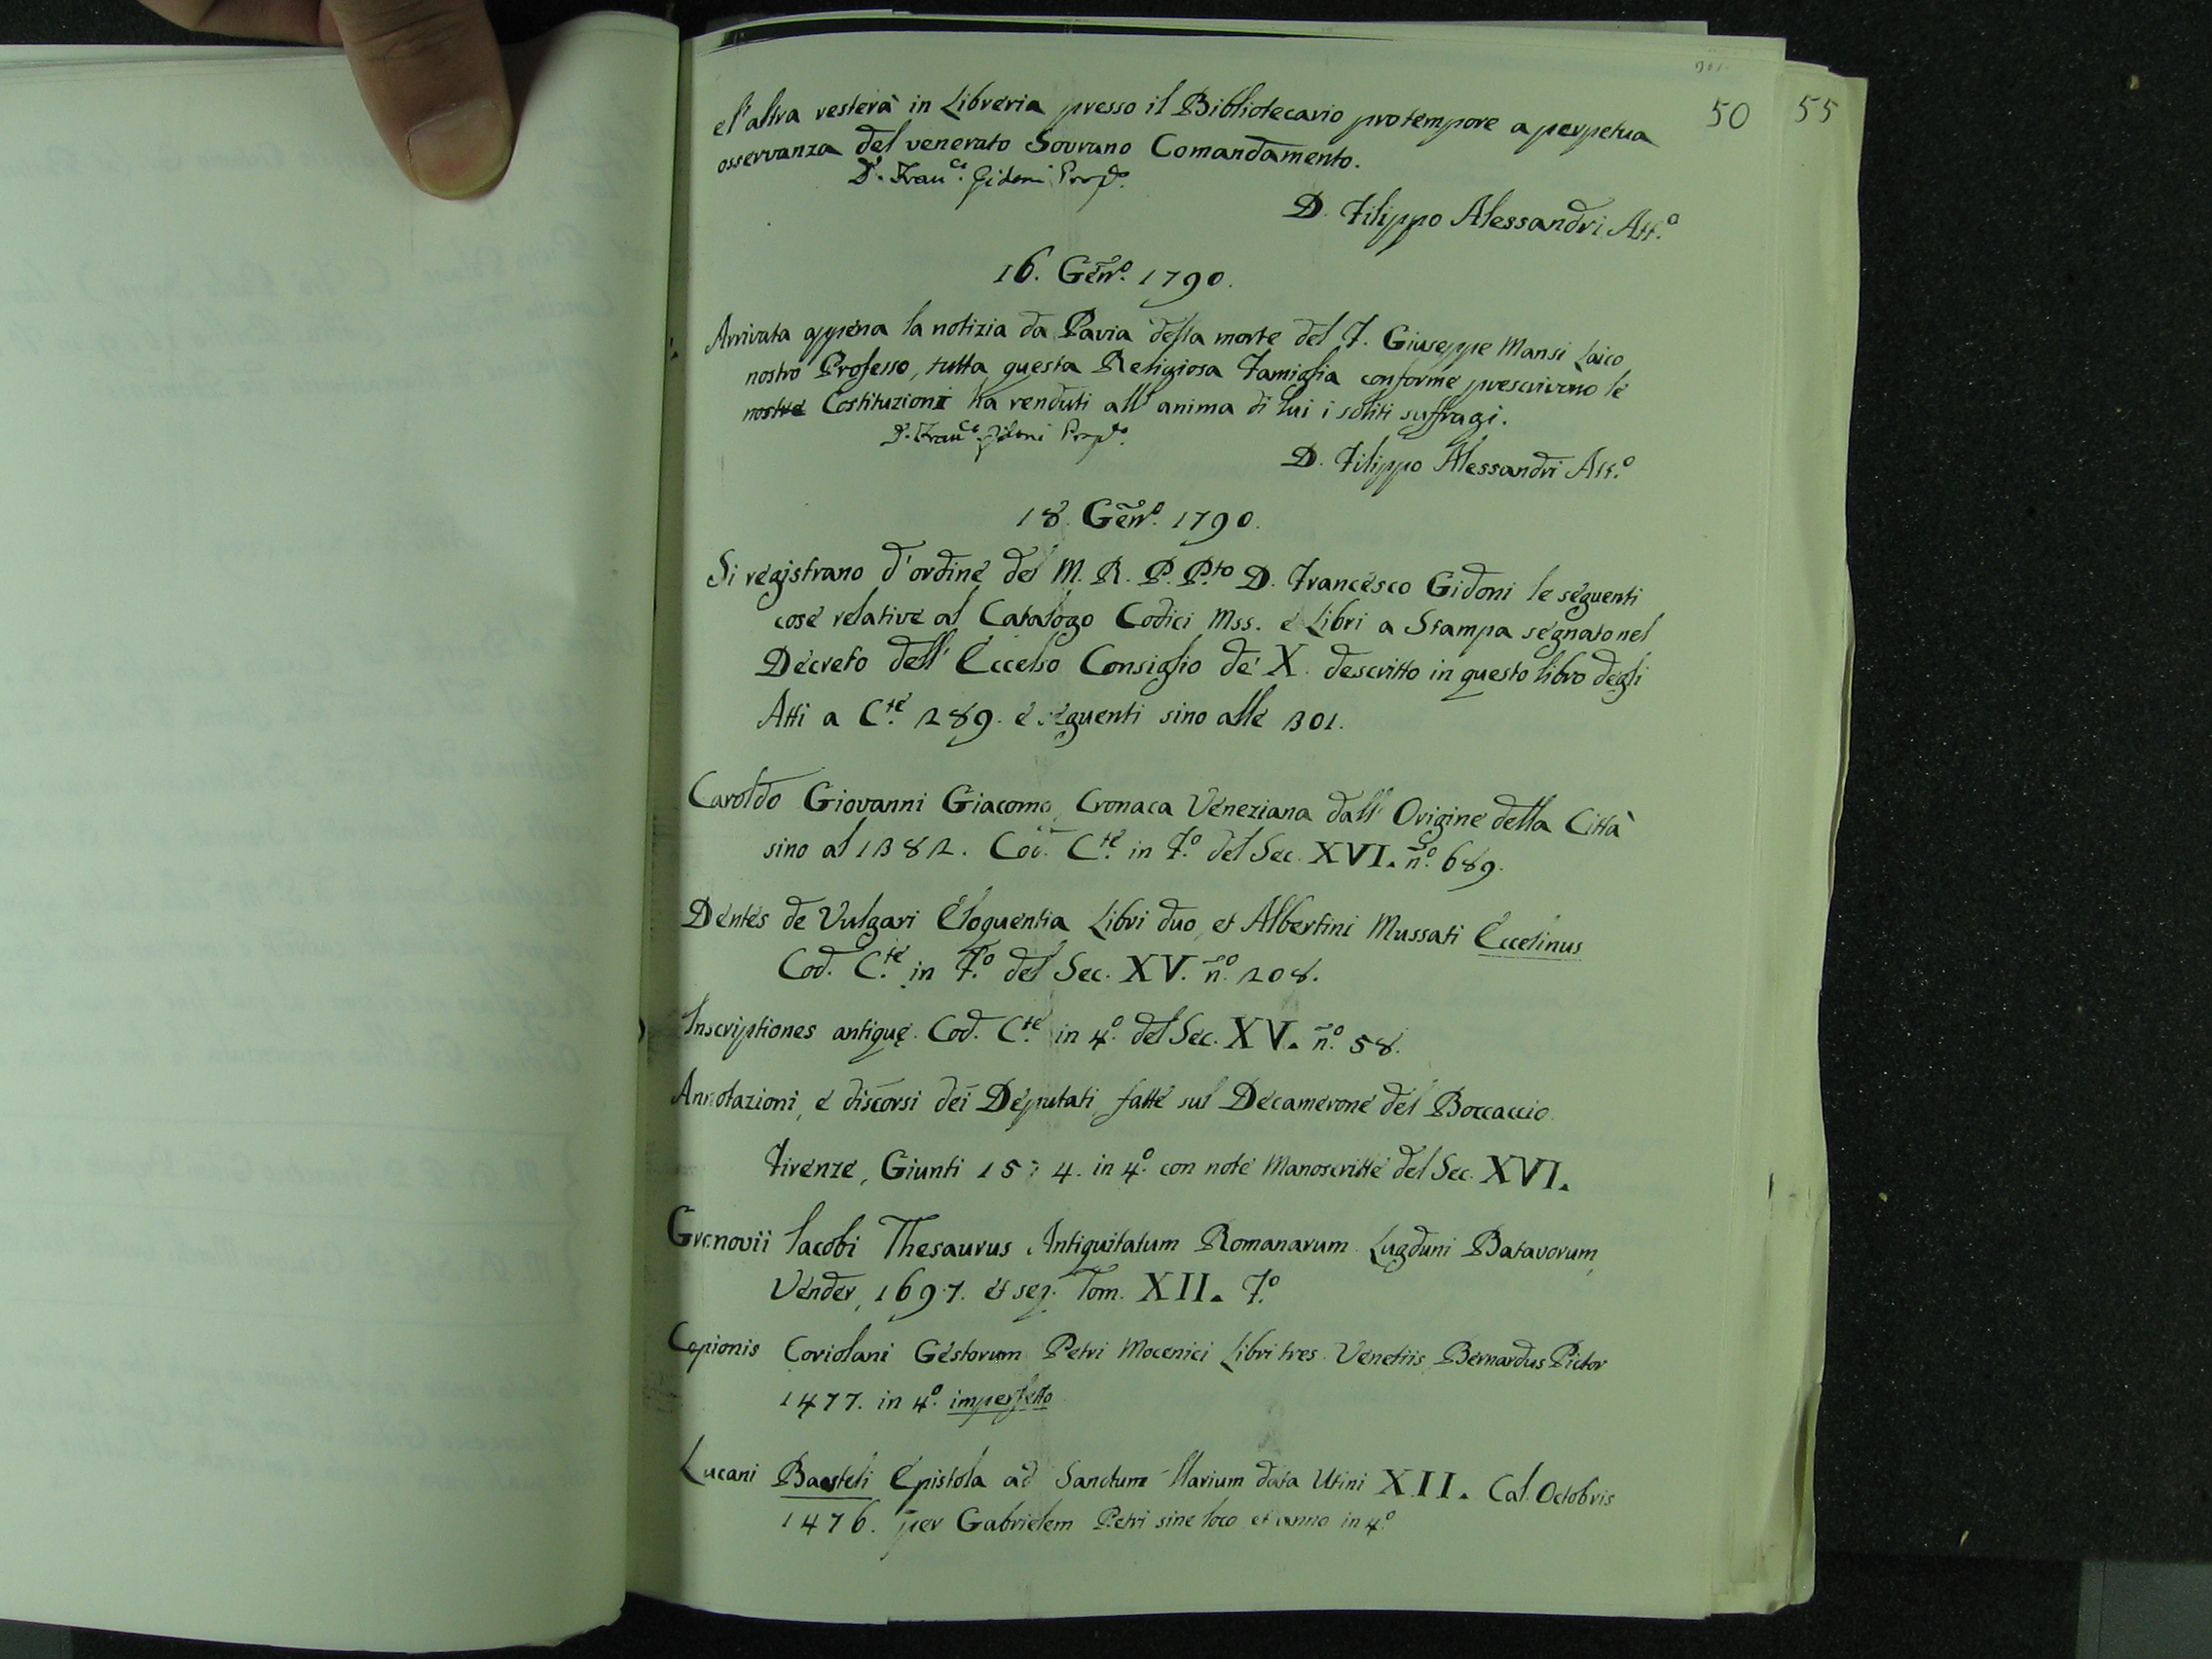 301.
50 55
e l'altra resterà in Libreria presso il Bibliotecario pro tempore a perpetua
osservanza del venerato Sovrano Comandamento.
D. Fran.co Gidoni Prop.o
D. Filippo Alessandri Att.o
16. Gen.o 1790.
Arrivata appena la notizia da Pavia della morte del F. Giuseppe Mansi Laico
nostro Professo, tutta questa Religiosa Famiglia conforme prescrivono le
nostre Costituzioni ha renduti all'anima di lui i soliti suffragi.
D. Fran.co Gidoni Prop.o
D. Filippo Alessandri Att.o
18. Gen.o 1790.
Si registrano d'ordine del M. R. P. P.to D. Francesco Gidoni le seguenti
cose relative al Catalogo Codici Mss. e Libri a Stampa segnato nel
Decreto dell' Eccelso Consiglio de' X. descritto in questo libro degli
Atti a C.te 289. e seguenti sino alle 301.
Caroldo Giovanni Giacomo, Cronaca Veneziana dall' Origine della Città
sino al 1382. Cod. C.te in F.o del Sec. XVI. n.o 689.
Dentes de Vulgari Eloquentia Libri duo, et Albertini Mussati Eccelinus
Cod. C.te in F.o del Sec. XV. n.o 208.
Inscriptiones antiquę. Cod. C.te in 4.o del Sec. XV. n.o 58.
Annotazioni, e discorsi dei Deputati fatte sul Decamerone del Boccaccio.
Firenze, Giunti 1574. in 4.o con note Manoscritte del Sec. XVI.
Gronovii Iacobi Thesaurus Antiquitatum Romanarum. Lugduni Batavorum,
Vender, 1697. et seq. Tom. XII. F.o
Cepionis Coriolani Gestorum Petri Mocenici Libri tres. Venetiis, Bernardus Pictor
1477. in 4.o imperfetto
Lucani Epistola ad Sanctum Ilarium data Utini XII. Cal. Octobris
1476. per Gabrielem Petri sine loco et anno in 4.o